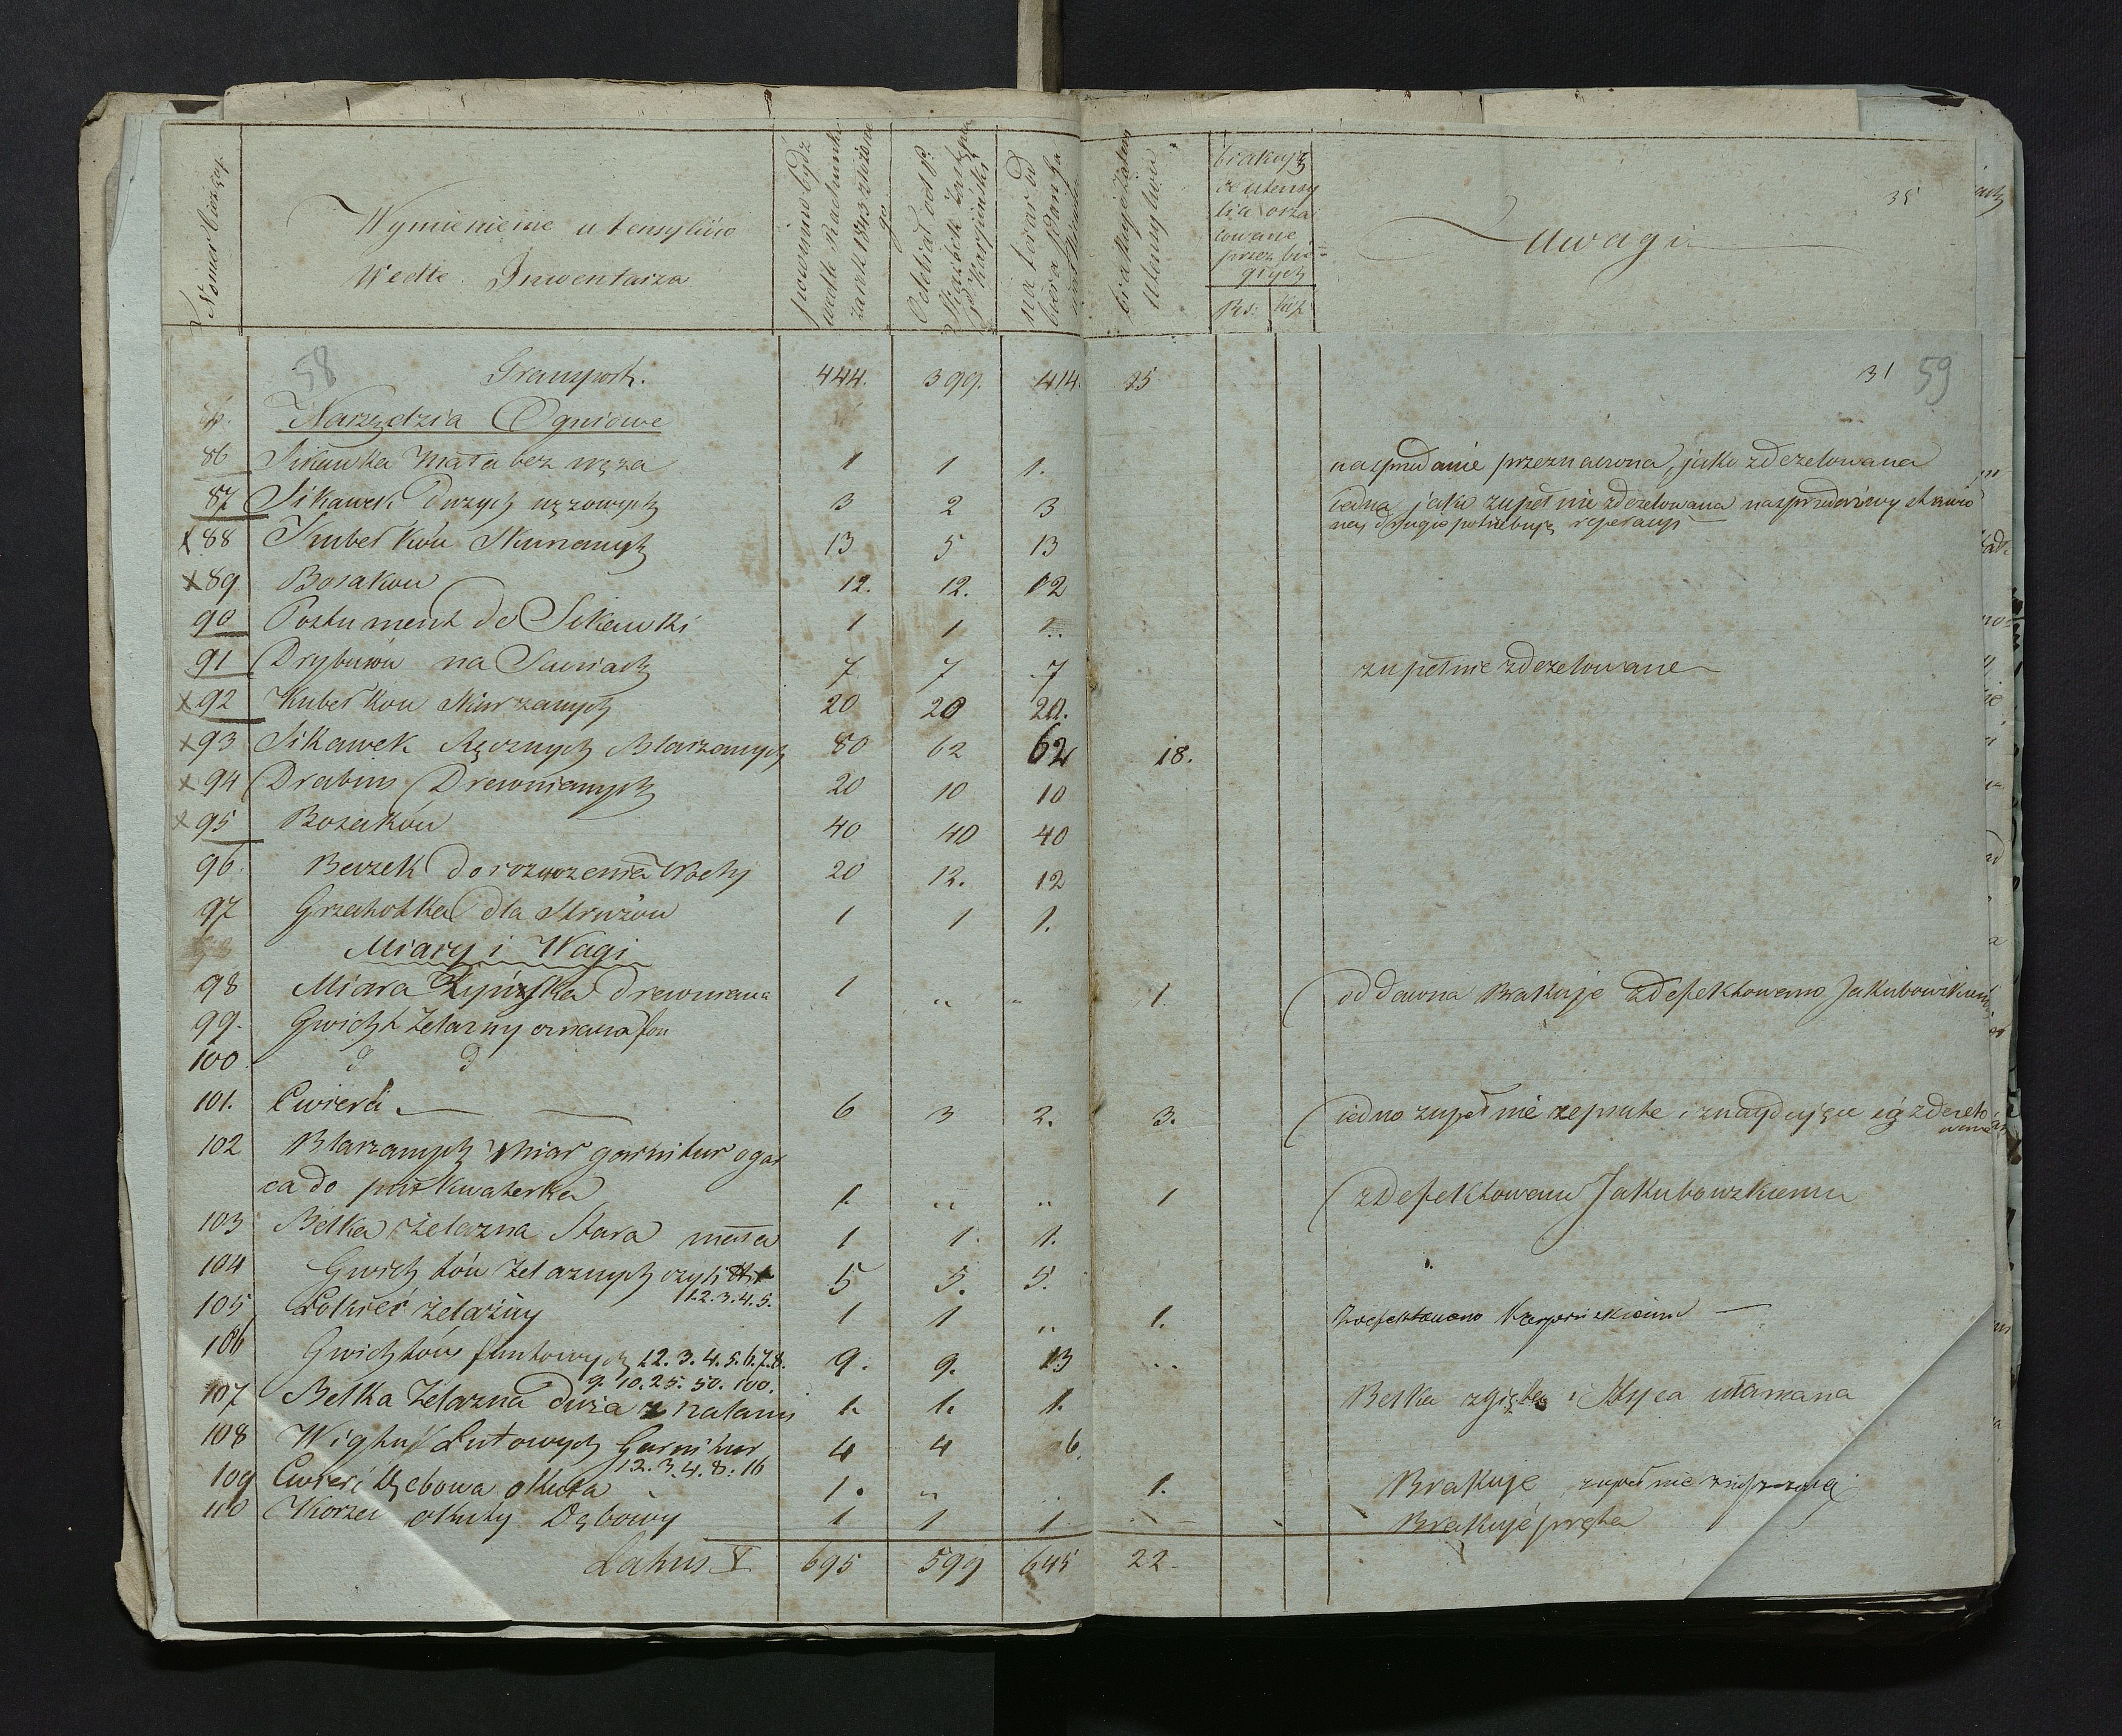 Numer bieżący
Wymienienie utensyliów
Wedle Inwentarza
powinno bydź
wedle Rachunku
za rok 1843 złożone
go
Odebrał od P.
Karpiński
na teraz od
biera
brakuje zatem
Utensyliów
brakują
ce utensy
lia osza
cowane
przez bie=
głych
Rs: Kop
Uwagi
35
58 Transport. 444. 399. 414. 25 31 59
Narzędzia Ogniowe
86 Sikawka mała bez węża 1 1 1. na sprzedanie przeznaczona, jako zdezelowana
87 Sikawek Dużych wężowych 3 2 3 jedna jako zupełnie zdezelowana na sprzedaż wystawio
na, drugie potrzebują reperacyi
x 88 Kubełków Skurzanych 13 5 13
x 89 Bosakow 12. 12. 12
90 Postument do Sikawki 1 1 1.
91 Drybusów na Saniach 7 7 7 zupełnie zdezelowane
x 92 Kubełkow Skurzanych 20 20 20.
x 93 Sikawek Ręcznych Blaszanych 80 62 62 18.
x 94 Drabin Drewnianych 20 10 10
x 95 Bosaków 40 40 40
96. Beczek do rożwożenia Wody 20 12. 12
97 Grzechotka dla Strużow 1 1 1.
Miary i Wagi
98 Miara drewniana 1 " " 1. od dawna Brakuje zdefektowano Jakubowskiemu
99. Gwicht żelazny
100 d d
101. Cwierci 6 3 2. 3. jedno zupełnie zepsute, znaydujące się zdezelo
wane
102 Blaszanych miar garnitur o gar
ca do puł kwaterka 1. " " 1 zdefektowano Jakubowskiemu
103 Belka żelazna Stara mała 1 1. 1.
104 Gwichtów żelaznych czyli 5 5. 5.
1.2.3.4.5.
105 Łokieć żelazny 1 1 " 1. zdefektowano Karpinskiemu
106 Gwichtów funtowych 1.2.3.4.5.6.7.8. 9. 9. 13
9. 10. 25. 50. 100.
107 Belka żelazna duża z 1. 1. 1. Belka zgięta i Szyca ułamana
108 Wight Łutowych Garnitur 4 4 6.
1 2. 3. 4. 8. 16
109 Cwierć Dębowa okuta 1. " 1. Brakuje zupełnie
110 Korzec okuty Dębowy 1 1 1 Brakuje pręta
Latus 695 599 645 22